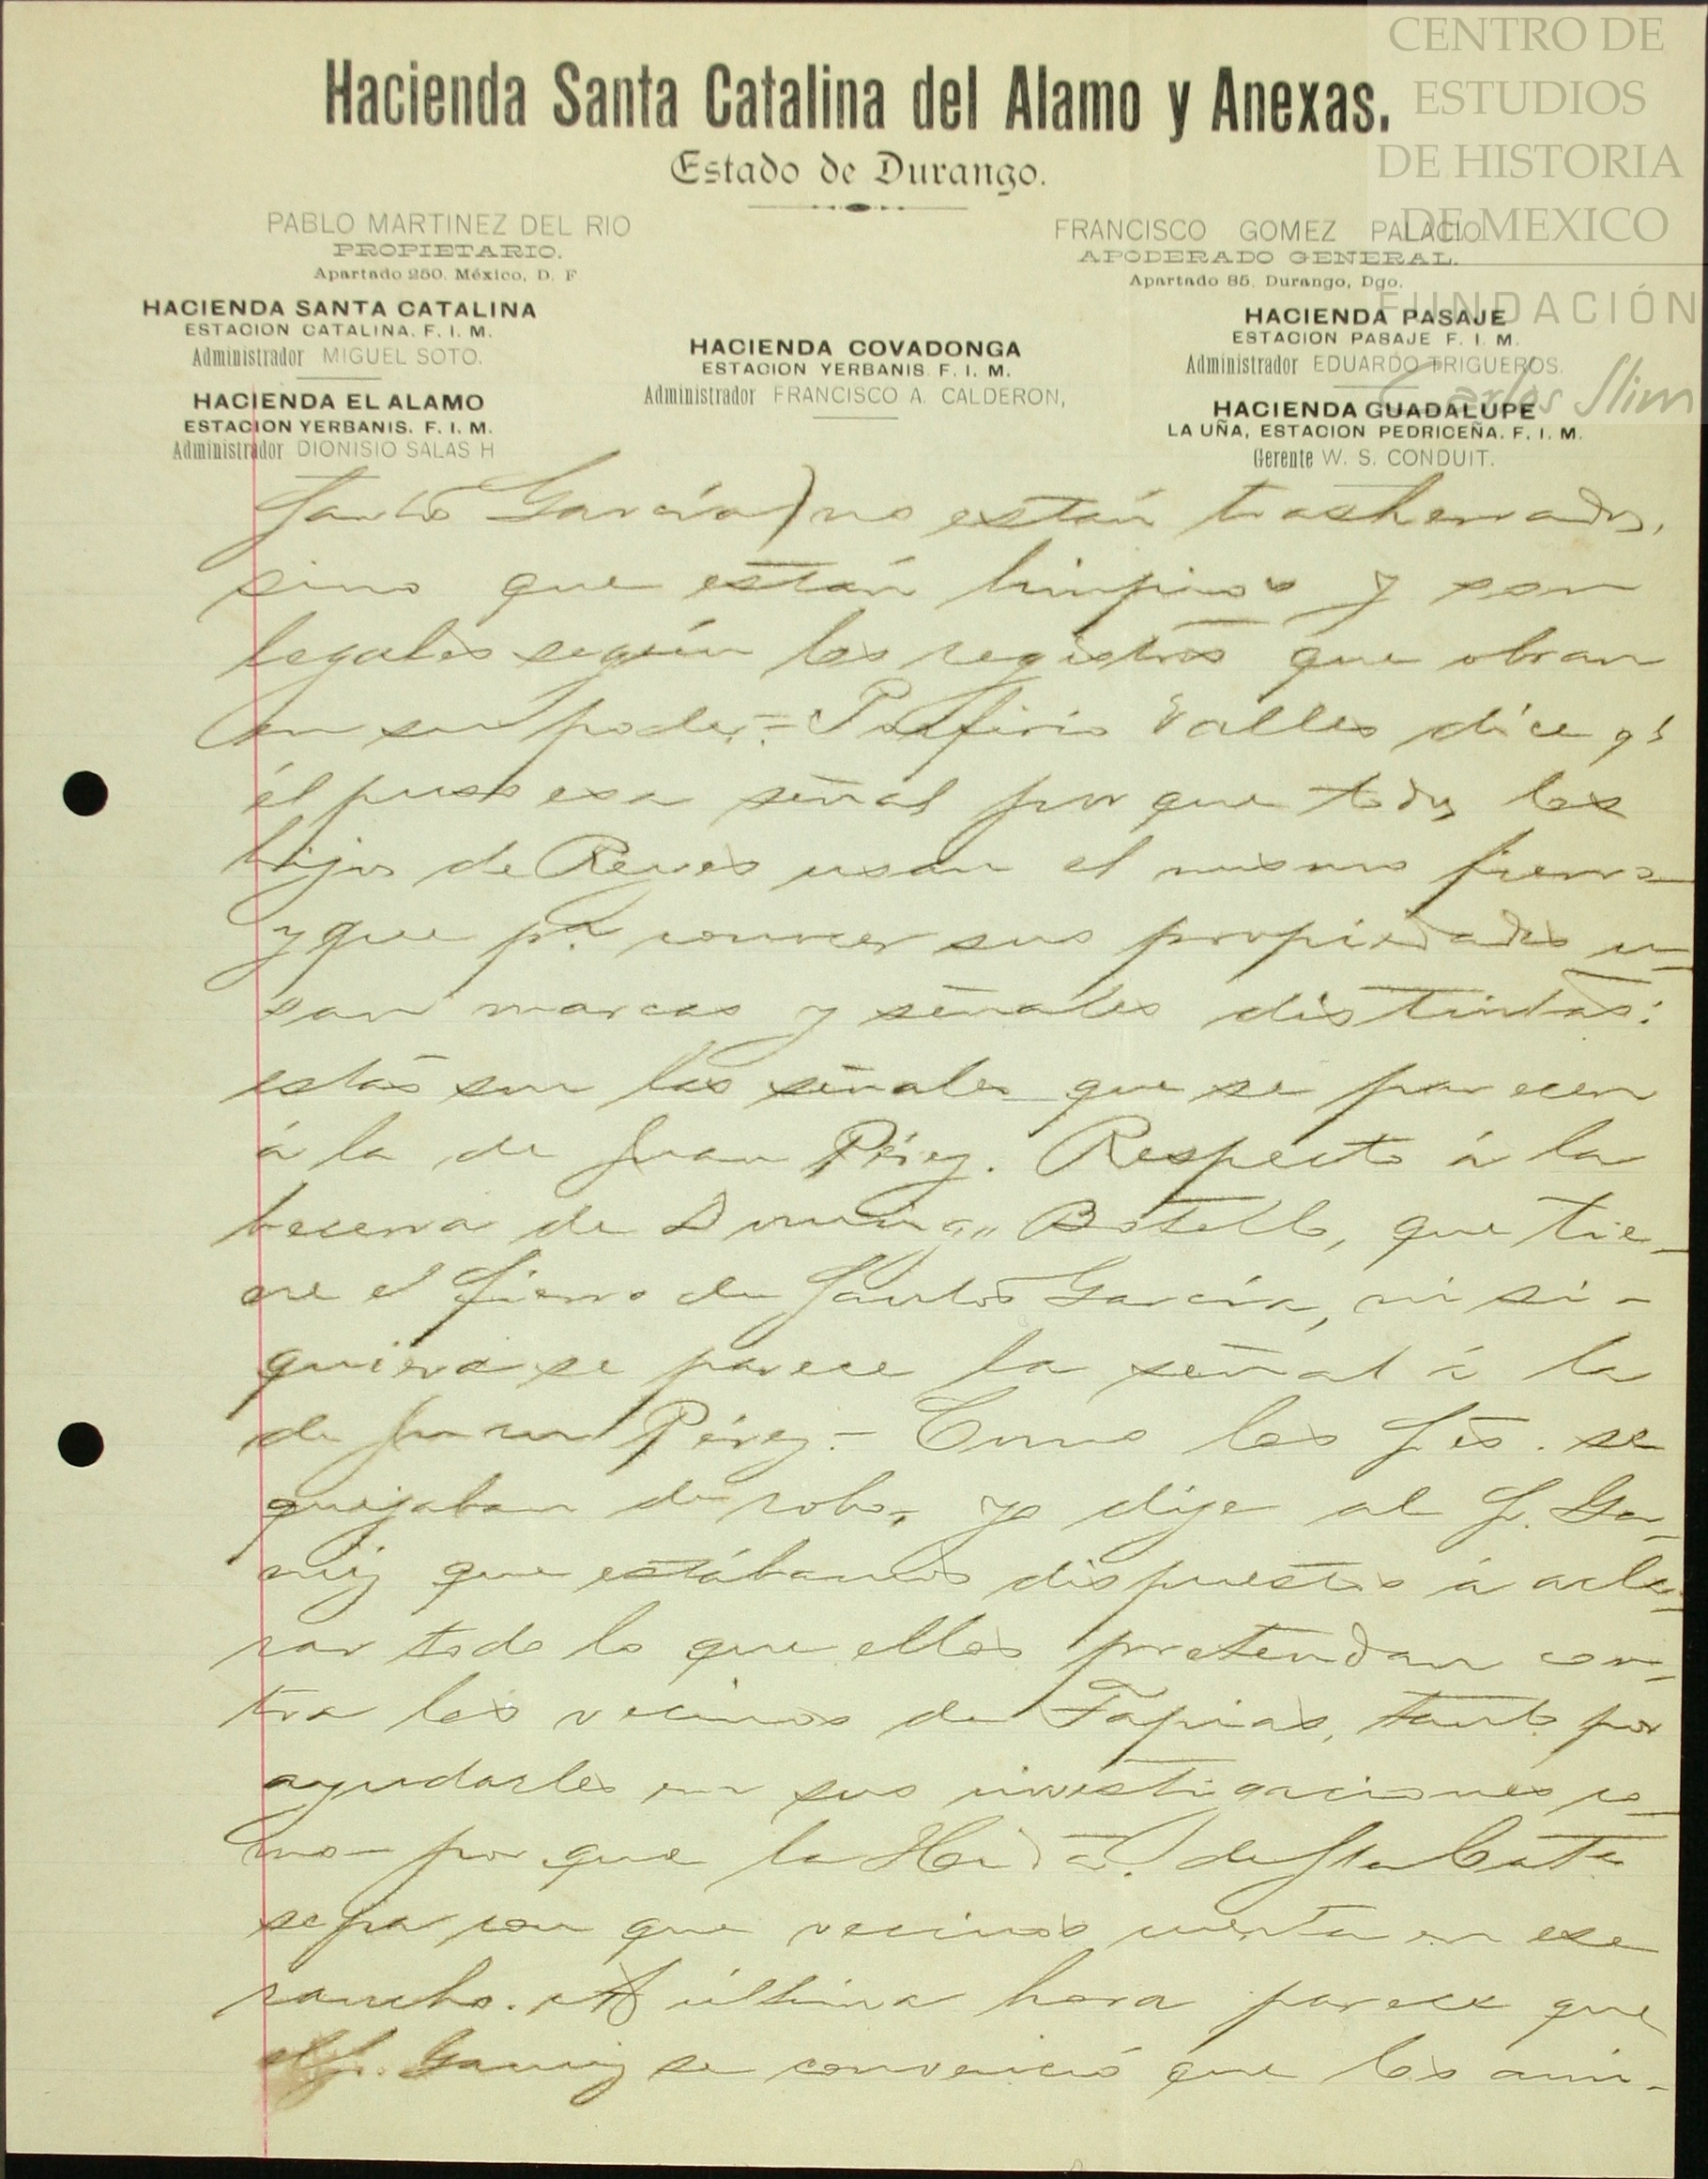 CENTRO DE
ESTUDIOS
DE HISTORIA
DE MEXICO
FUNDACIÓN
Carlos Slim
Hacienda Santa Catalina del Alamo y Anexas.
Estado de Durango.
PABLO MARTINEZ DEL RIO
PROPIETARIO.
Apartado 250. México, D. F
FRANCISCO GOMEZ PALACIO
APODERADO GENERAL.
Apartado 85, Durango, Dgo.
HACIENDA SANTA CATALINA
ESTACION CATALINA. F. I. M.
Administrador MIGUEL SOTO.
HACIENDA EL ALAMO
ESTACION YERBANIS. F. I. M.
Administrador DIONISIO SALAS H
HACIENDA COVADONGA
ESTACION YERBANIS F. I. M.
Administrador FRANCISCO A. CALDERON,
HACIENDA PASAJE
ESTACION PASAJE F. I. M.
Administrador EDUARDO TRIGUEROS.
HACIENDA GUADALUPE
LA UÑA, ESTACION PEDRICEÑA. F. I. M.
Gerente W. S. CONDUIT.
Santos García) no están trasherrados,
sino que están limpios y son
legales según los registros que obran
en su poder.= Porfirio Valles dice qe
él puso esa señal por que todos los
hijos de Reyes usan el mismo fierro
y que pa. conocer sus propiedades u-
san marcas y señales distintas:
estas son las señales que se parecen
á la de Juan Pérez. Respecto á la
becerra de Domingo Botello, que tie-
ne el fierro de Santos García, ni si-
quiera se parece la señal á la
de Juan Pérez.- Como los Sres. se
quejaban de robo, yo dije al Sr. Gar-
niz que estábamos dispuestos á acla-
rar todo lo que ellos pretendan con-
tra los vecinos de Tapias, tanto por
ayudarles en sus investigaciones co-
mo por que la Hcda. de Sta Cata
sepa con que vecinos cuenta en ese
rancho. A última hora parece que
el Sr. se convenció que los ani-